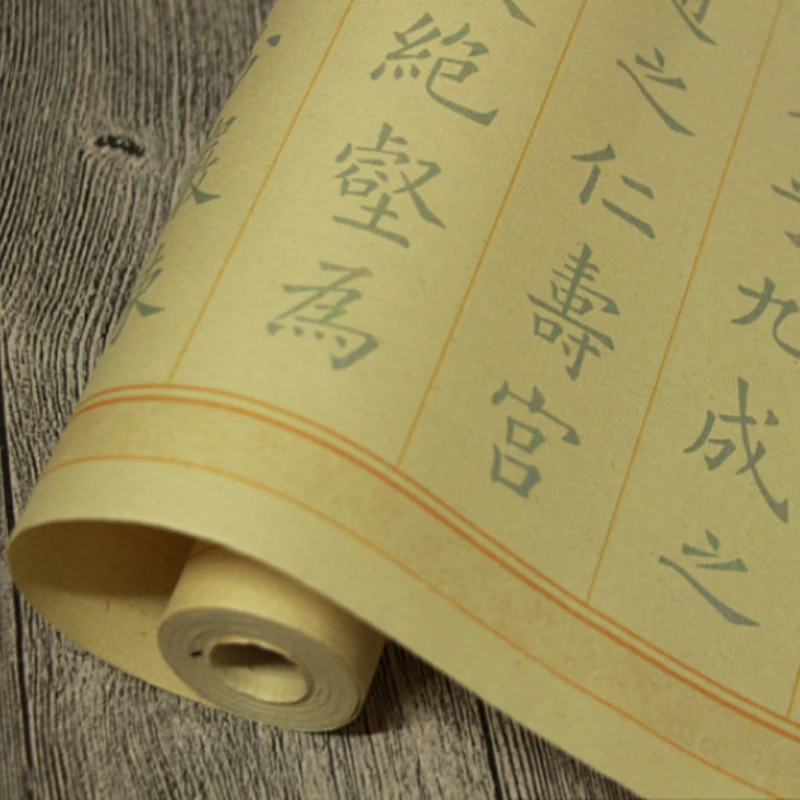 九成之
之仁壽宮
絕壑為